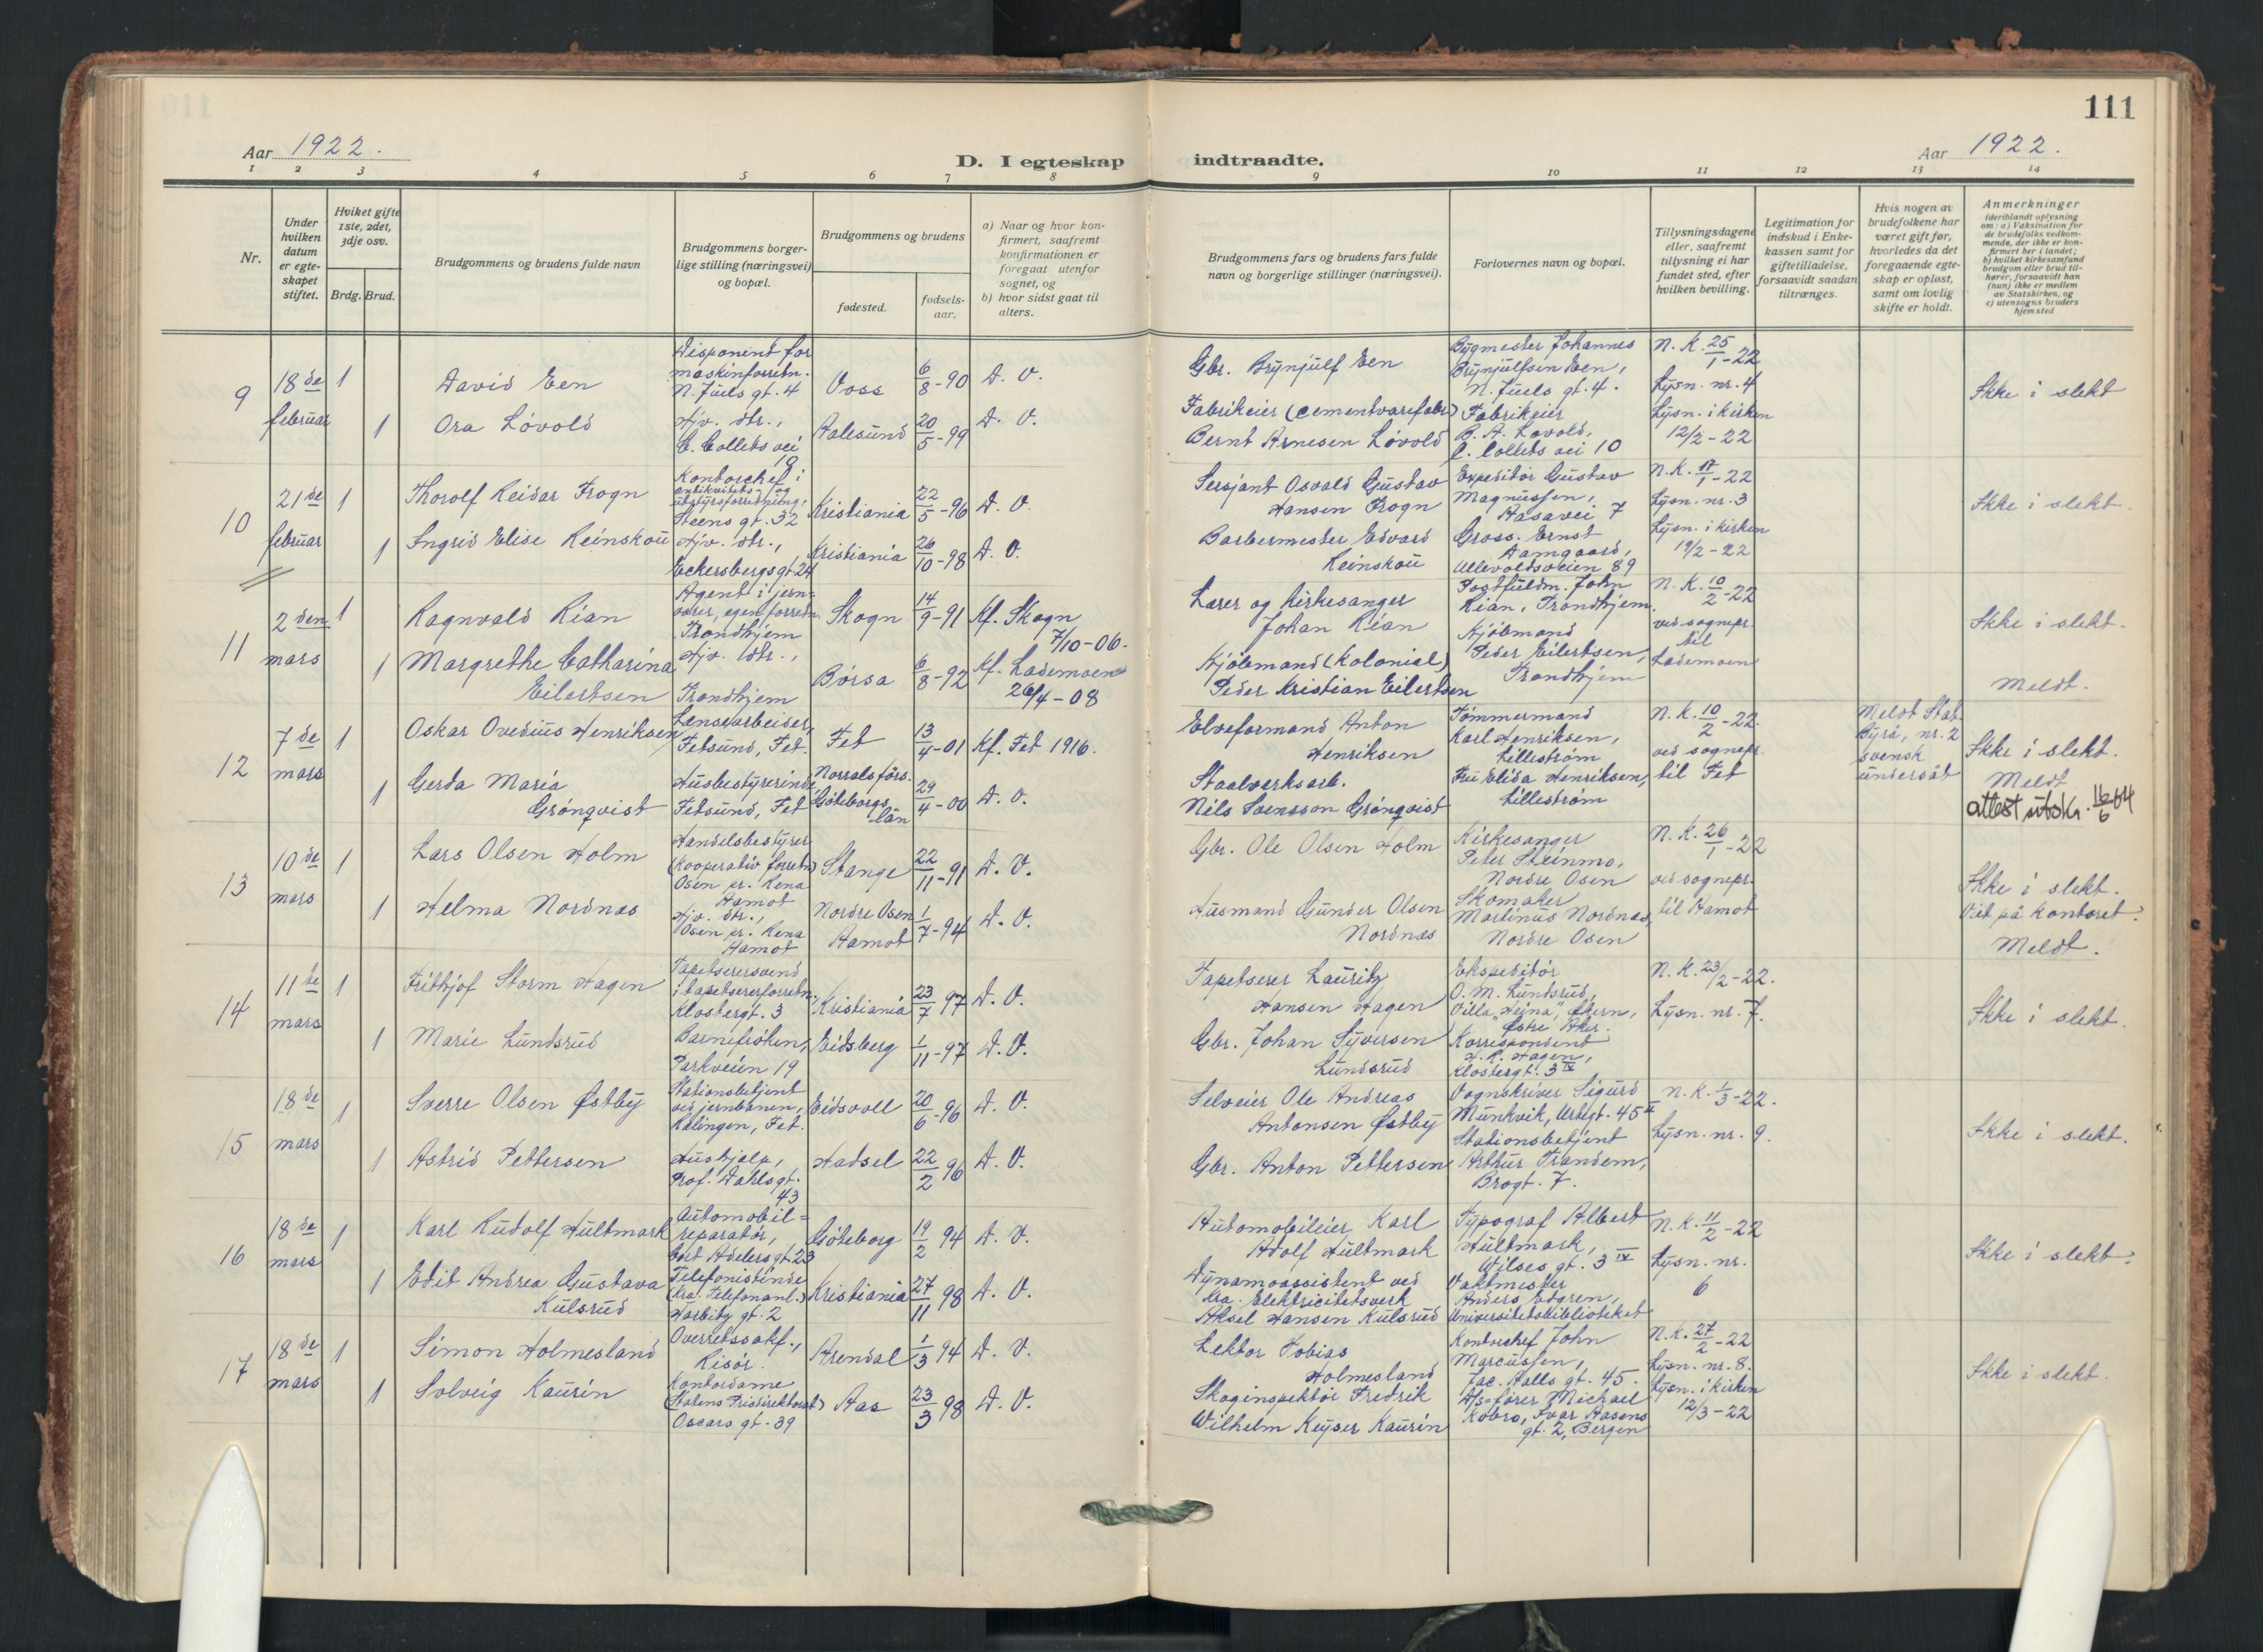 111
Aar 1922.
D. I egteskap indtraadte.
Aar 1922.
1 2 3 4 5 6 7 8 9 10 11 12 13 14
Nr.
Under hvilken datum er egte-skapet stiftet.
Hviket gifte 1ste, 2det, 3dje osv.
Brdg. Brud.
Brudgommens og brudens fulde navn
Brudgommens borger-lige stilling (næringsvei) og bopæl.
Brudgommens og brudens
fødested.
fødsels-aar.
a) Naar og hvor kon-firmert, saafremt konfirmationen er foregaat utenfor sognet, og
b) hvor sidst gaat til alters.
Brudgommens fars og brudens fars fulde navn og borgerlige stillinger (næringsvei).
Forlovernes navn og bopæl.
Tillysningsdagene eller, saafremt tillysning ei har fundet sted, efter hvilken bevilling.
Legitimation for indskud i Enke-kassen samt for giftetilladelse, forsaavidt saadan tiltrænges.
Hvis nogen av brudefolkene har været gift før, hvorledes da det foregaaende egte-skap er opløst, samt om lovlig skifte er holdt.
Anmerkninger
(deriblandt oplysning om: a) Vaksination for de brudefolks vedkom-mende, der ikke er kon-firmert her i landet; b) hvilket kirkesamfund brudgom eller brud til-hører, forsaavidt han (hun) ikke er medlem av Statskirken, og c) utensogns bruders hjemsted
9
18de februar
1
David Een
Disponent for maskinforretn. N. Juels gt. 4
Voss
6/8-90
D. V.
Gbr. Brynjulf Een
Bygmester Johannes Brynjulfsen Een, N. Juels gt. 4.
N. K. 25/1-22
Lysn. nr. 4
Ikke i slekt
1
Ora Løvold
Hjv. dtr., C. Colletts vei 10
Aalesund
20/5-99
D. V.
Fabrikeier (cementvarefabr.) Bernt Arnesen Løvold
Fabrikeier B. A. Løvold, C. Colletts vei 10
Lysn. i kirken 12/2-22
10
21de februar
1
Thorolf Reidar Frogn
Kontorchef i antikvitets- og utstyrsforretning, Steens gt. 32
Kristiania
22/5-96
D. V.
Sersjant Osvald Gustav Hansen Frogn
Expeditør Gustav Magnussen, Aasavei 7
N. K. 17/1-22
Lysn. nr. 3
Ikke i slekt.
1
Ingrid Elise Reinskou
Hjv. dtr., Eckersbergs gt. 24
Kristiania
26/10-98
D. V.
Barbermester Edvard Reinskou
Gross. Ernst Aamgaard, Ullevoldsveien 89
Lysn. i kirken 19/2-22
11
2den mars
1
Ragnvald Rian
Agent i jern-varer, egen forretn. Trondhjem
Skogn
14/9-91
Kf. Skogn 7/10-06.
Lærer og kirkesanger Johan Rian
Postfuldm. John Rian, Trondhjem.
N. K. 10/2-22
ved sognepr. til Lademoen
Ikke i slekt.
1
Margrethe Catharina Eilertsen
Hjv. dtr., Trondhjem
Børsa
6/8-92
Kf. Lademoen 26/4-08
Kjøbmand (Kolonial) Peder Kristian Eilertsen
Kjøbmand Peder Eilertsen, Trondhjem
Meldt.
12
7de mars
1
Oskar Ovedius Henriksen
Lensearbeider, Fetsund, Fet.
Fet
13/4-01
Kf. Fet 1916.
Elveformand Anton Henriksen
Tømmermand Karl Henriksen, Lillestrøm
N. K. 10/2-22.
ved sognepr. til Fet
Meldt Stat. Byrå, nr. 2 svensk undersåt
Ikke i slekt.
1
Gerda Maria Grönqvist
Husbestyrerinde Fetsund, Fet
Norrals förs. Göteborgs län
29/4-00
D. V.
Staalverksarb. Nils Svensson Grönqvist
Fru Elida Henriksen, Lillestrøm
Meldt
attest utskr. 16/6 64
13
10de mars
1
Lars Olsen Holm
Handelsbestyrer (kooperativ forretn) Osen pr. Rena Aamot
Stange
22/11-91
D. V.
Gbr. Ole Olsen Holm
Kirkesanger Peter Steinmo, Nordre Osen
N. K. 26/1-22
ved sognepr. til Aamot
Ikke i slekt.
Viet på kontoret.
1
Helma Nordnæs
Hjv. dtr., Osen pr. Rena Aamot
Nordre Osen Aamot
1/7-94
D. V.
Husmand Gunder Olsen Nordnæs
Skomaker Martinus Nordnæs, Nordre Osen
Meldt.
14
11te mars
1
Frithjof Storm Hagen
Tapetserersvend i tapetsererforretn., Klostergt. 3
Kristiania
23/7 97
D. V.
Tapetserer Lauritz Hansen Hagen
Ekspeditør O. M. Lundsrud, Villa "Heina", Økern, Østre Aker.
N. K. 23/2-22.
Lysn. nr. 7.
Ikke i slekt.
1
Marie Lundsrud
Barnefrøken, Parkveien 19
Eidsberg
1/11-97
D. V.
Gbr. Johan Syversen Lundsrud
Korrespondent H. R. Hagen, Klostergt. 3 IV
15
18de mars
1
Sverre Olsen Østby
Stationsbetjent ved jernbanen, Rælingen, Fet.
Eidsvoll
20/6-96
D. V.
Selveier Ole Andreas Antonsen Østby
Vognskriver Sigurd Munkvik, Urtegt. 45 II
N. K. 1/3-22.
Lysn. nr. 9.
Ikke i slekt.
1
Astrid Pettersen
Hushjelp, Prof. Dahls gt. 43
Hadsel
22/2 96
D. V.
Gbr. Anton Pettersen
Stationsbetjent Arthur Trandem, Brogt. 7.
16
18de mars
1
Karl Rudolf Hultmark
Automobil-reparatør, Cort Adelers gt. 23
Göteborg
19/2 94
D. V.
Automobileier Karl Adolf Hultmark
Typograf Albert Hultmark, Wilses gt. 3 IV
N. K. 11/2-22
Lysn. nr. 6
Ikke i slekt.
1
Edit Andrea Gustava Kulsrud
Telefonistinde (Kra. Telefonanl.) Harbitz gt. 2
Kristiania
27/11 98
D. V.
Dynamoassistent ved Kra. Elektricitetsverk Aksel Hansen Kulsrud
Vaktmester Anders Edgren, Universitetsbiblioteket
17
18de mars
1
Simon Holmesland
Overretssakf., Risør.
Arendal
1/3 94
D. V.
Lektor Tobias Holmesland
Kontorchef John Marcussen, Jac. Aalls gt. 45.
N. K. 27/2-22
Lysn. nr. 8.
Ikke i slekt.
1
Solveig Kaurin
Kontordame (Statens Prisdirektorat) Oscars gt. 39
Aas
23/3 98
D. V.
Skoginspektør Fredrik Wilhelm Keyser Kaurin
Kobro, Ivar Aasens gt. 2, Bergen
Lysn. i kirken 12/3-22